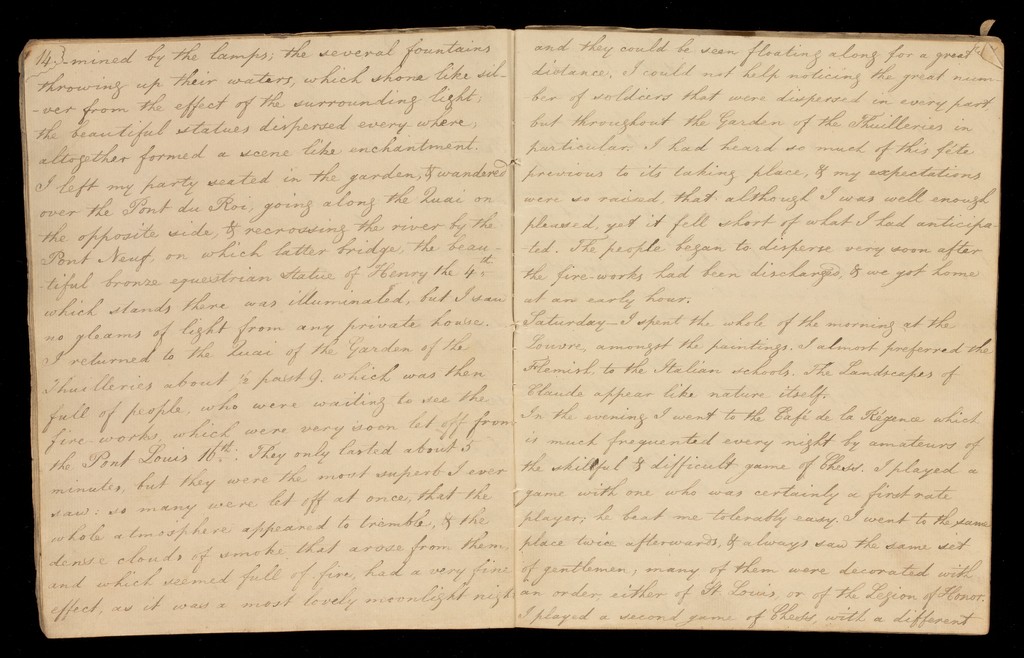 14. -mined by the lamps; the several fountains
throwing up their waters, which shone like sil-
-ver from the effect of the surrounding light;
the beautiful statues dispersed every where,
altogether formed a scene like enchantment.
I left my party seated in the garden, & wandered
over the Pont du Roi, going along the Quai on
the opposite side, & recrossing the river by the
Pont Neuf, on which latter bridge, the beau-
-tiful bronze equestrian statue of Henry the 4th.
which stands there was illuminated, but I saw
no gleams of light from any private house.
I returned to the Quai of the Garden of the
Thuilleries about ½ past 9. which was then
full of people, who were waiting to see the
fire-works, which were very soon let off from
the Pont Louis 16th. They only lasted about 5
minutes, but they were the most superb I ever
saw: so many were let off at once, that the
whole atmosphere appeared to tremble, & the
dense clouds of smoke that arose from them,
and which seemed full of fire, had a very fine
effect, as it was a most lovely moonlight nigh
and they could be seen floating along for a great
distance. I could not help noticing the great num-
ber of soldiers that were dispersed in every part
but throughout the Garden of the Thuilleries in
particular. I had heard so much of this fête
previous to its taking place, & my expectations
were so raised, that although I was well enough
pleased, yet it fell short of what I had anticipa-
ted. The people began to disperse very soon after
the fire-works had been discharged, & we got home
at an early hour.
Saturday—I spent the whole of the morning at the
Louvre, amongst the paintings. I almost preferred the
Flemish, to the Italian schools. The Landscapes of
Claude appear like nature itself.
In the evening I went to the Café de la Régence which
is much frequented every night by amateurs of
the skillful & difficult game of Chess. I played a
game with one who was certainly a first rate
player; he beat me tolerably easy. I went to the same
place twice afterwards, & always saw the same set
of gentlemen; many of them were decorated with
an order, either of St. Louis, or of the Legion of Honor.
I played a second game of Chess, with a different